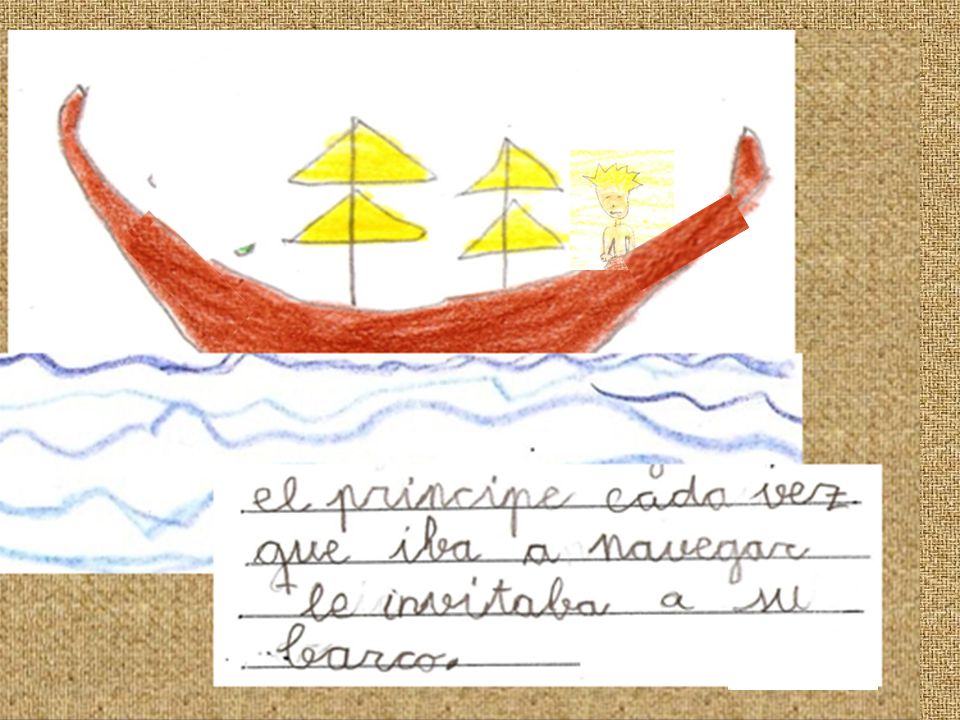 el principe cada vez
que iba a navegar
le invitaba a su
barco.